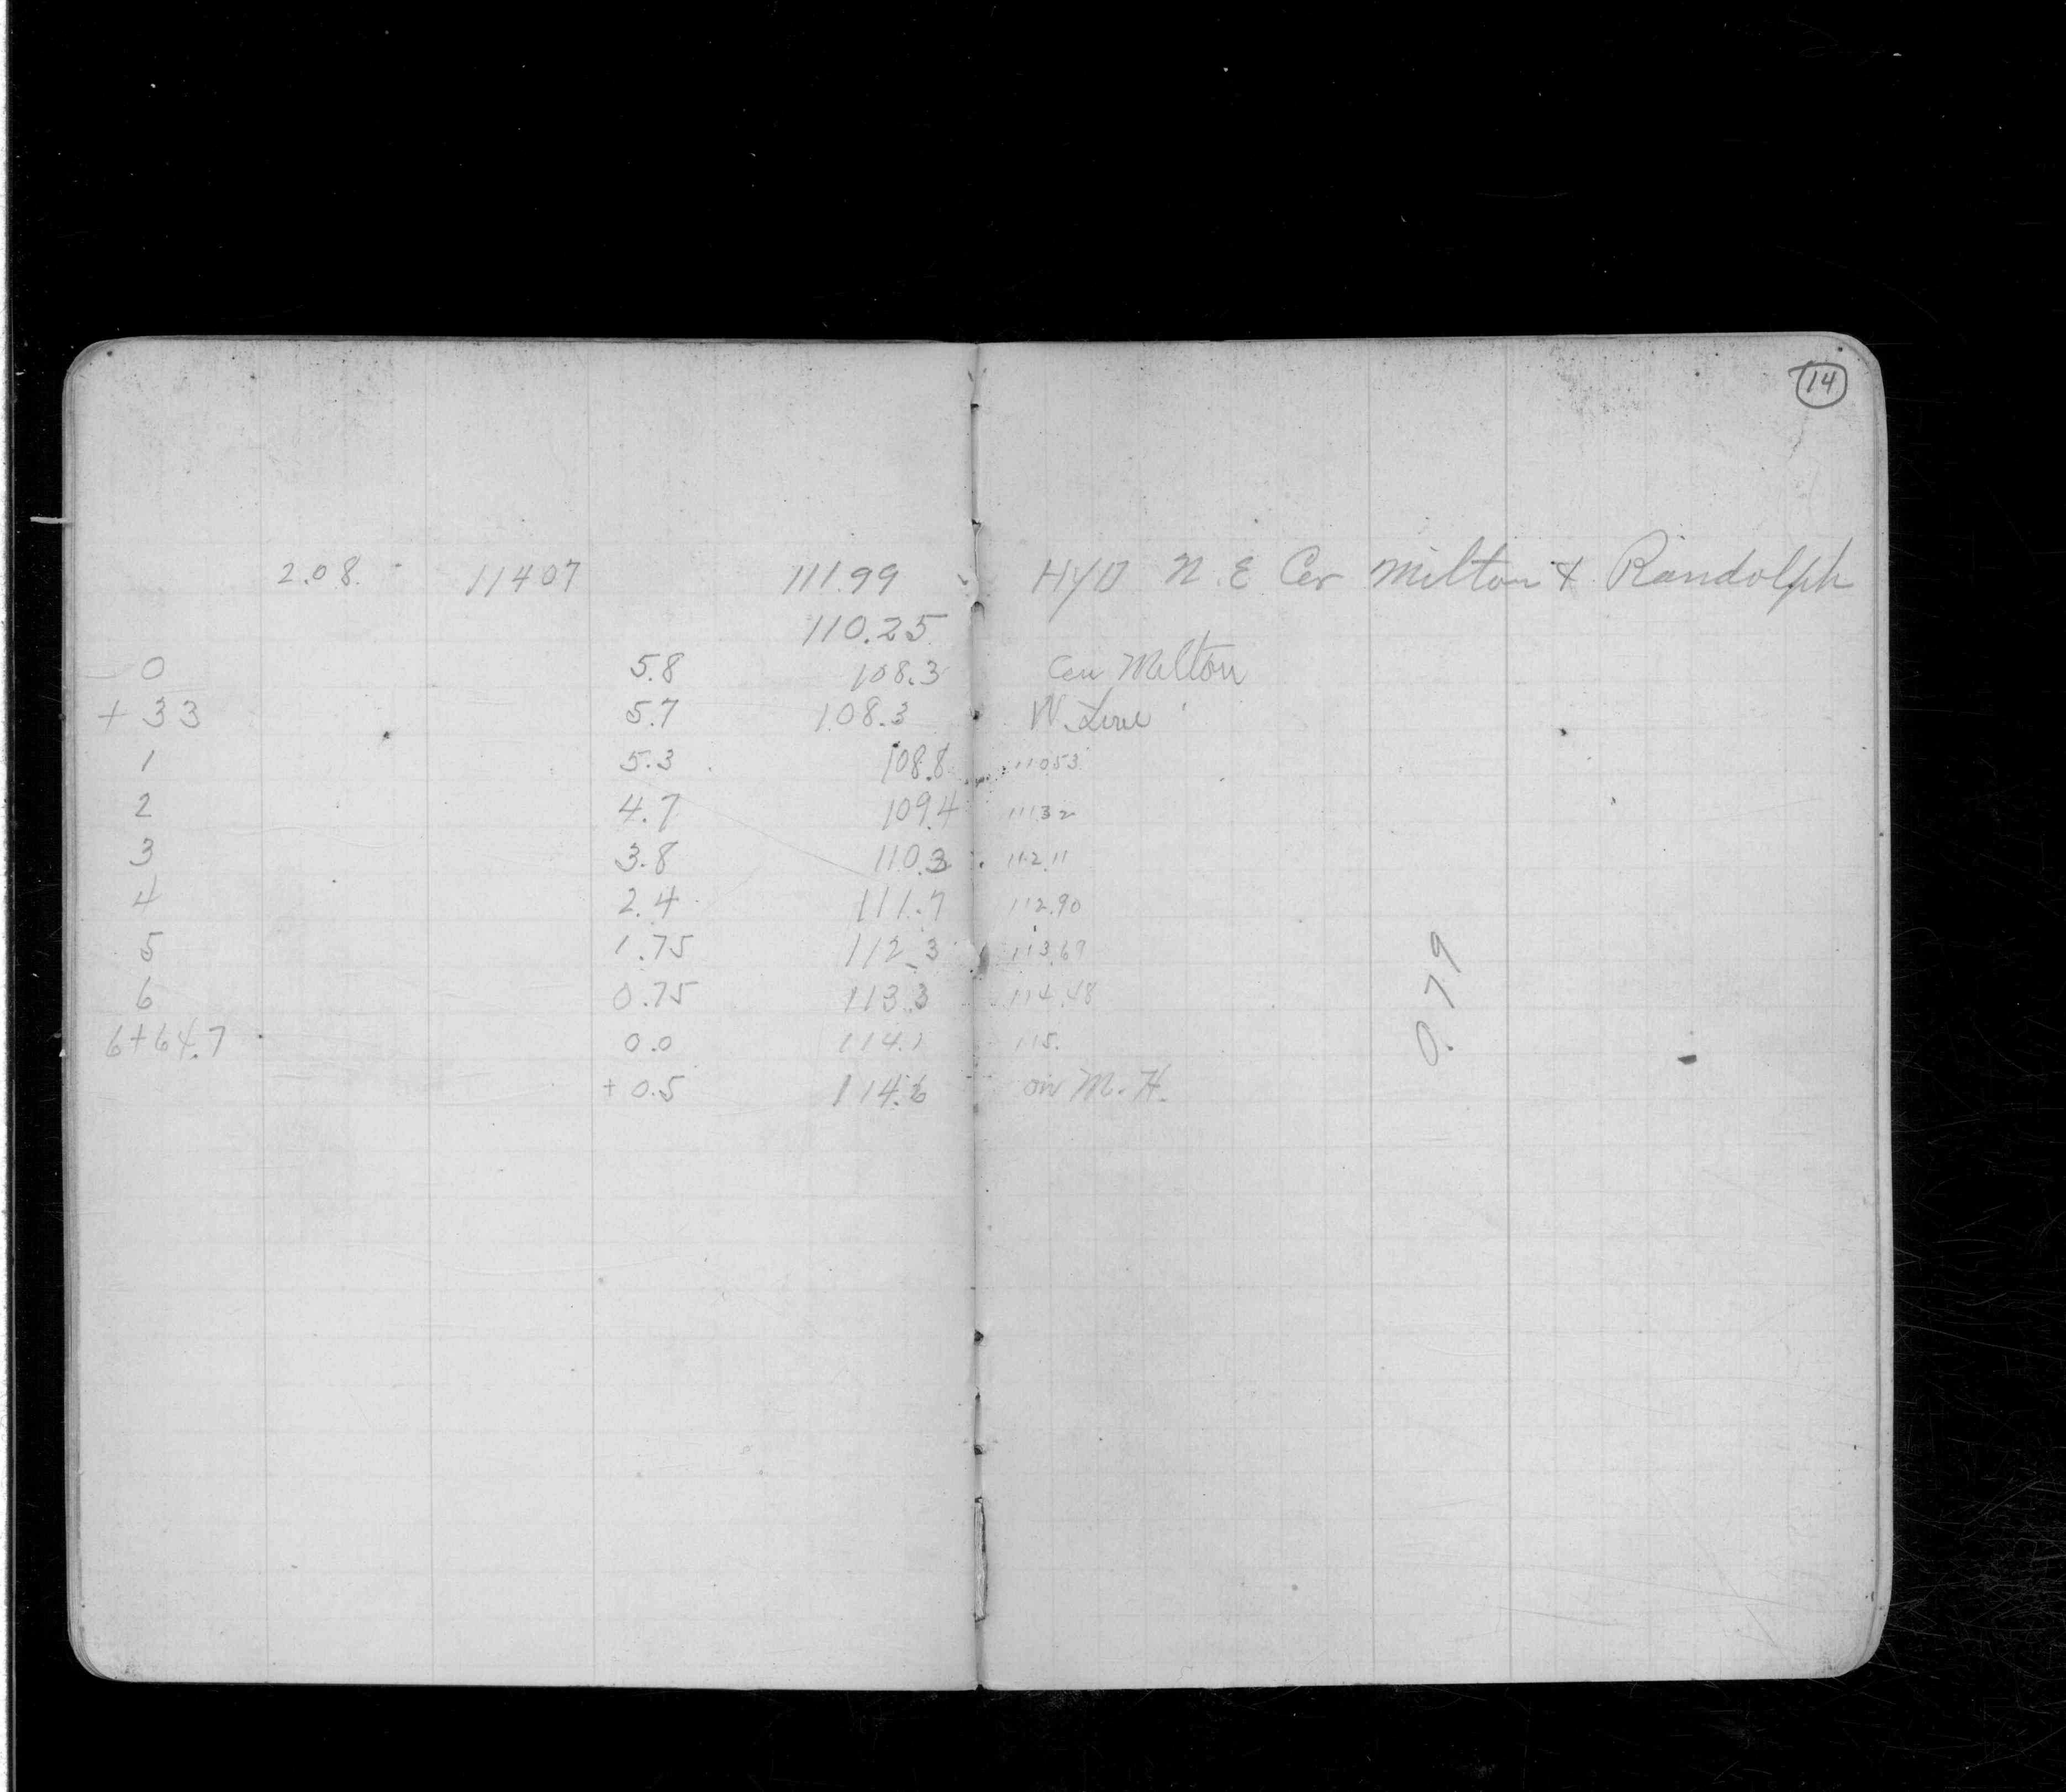 14
2.08. 11407 111.99 HYD N.E Cor Milton & Randolph
110.25
0 5.8 108.3 Cen Milton
+ 33 5.7 108.3 W. Line
1 5.3 108.8 110.53
2 4.7 109.4 111.32
3 3.8 110.3 112.11
4 2.4 111.7 112.90
5 1.75 112.3 113.69
6 0.75 113.3 114.48
6+64.7 0.0 114.1 115.
+ 0.5 114.6 on M.H.
0.79